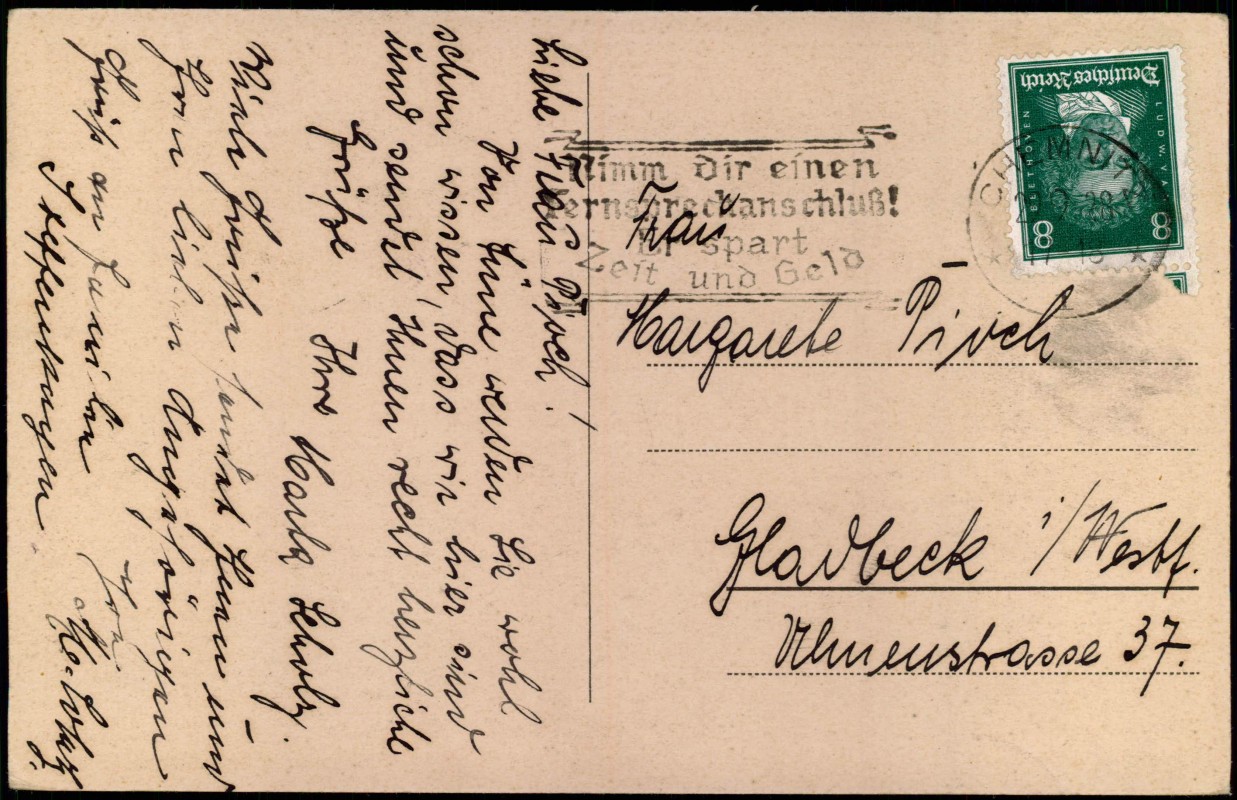 Liebe Frau Pivch!
Von Lüne werden Sie wohl
schon wissen, dass wir hier sind
und sendet Ihnen recht herzliche
Grüße Ihre Marta Scholz.
Viele Grüße sendet Ihnen und
Ihren lieben Angehörigen
Gruß an Familien
von
Steffenhagen.
Deutsches Reich
LUDW. VAN
BEETHOVEN
8 8
CHEMNITZ
Nimm dir einen
Fernsprechanschluß!
Er spart
Zeit und Geld
Frau
Margarete Pivch
Gladbeck i/Westf.
Ulmenstrasse 37.